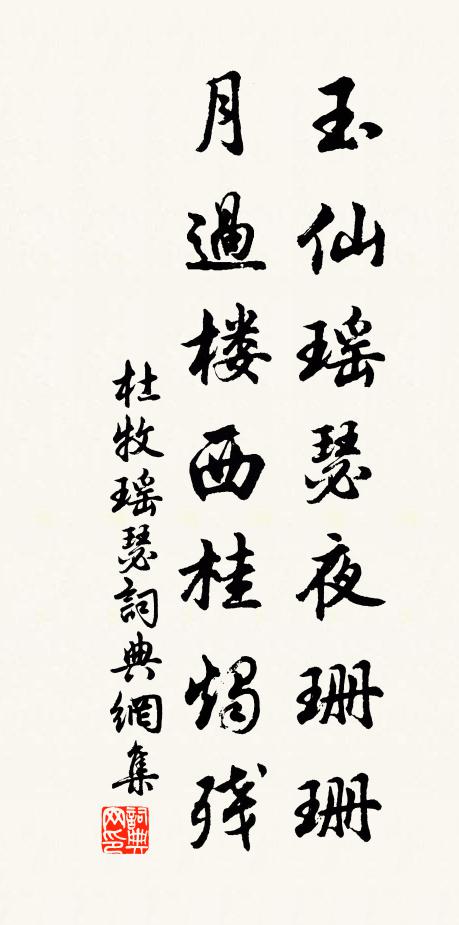 玉仙瑶瑟夜珊珊
月過楼西桂燭残
杜牧瑶瑟詞典網集
詞典网印